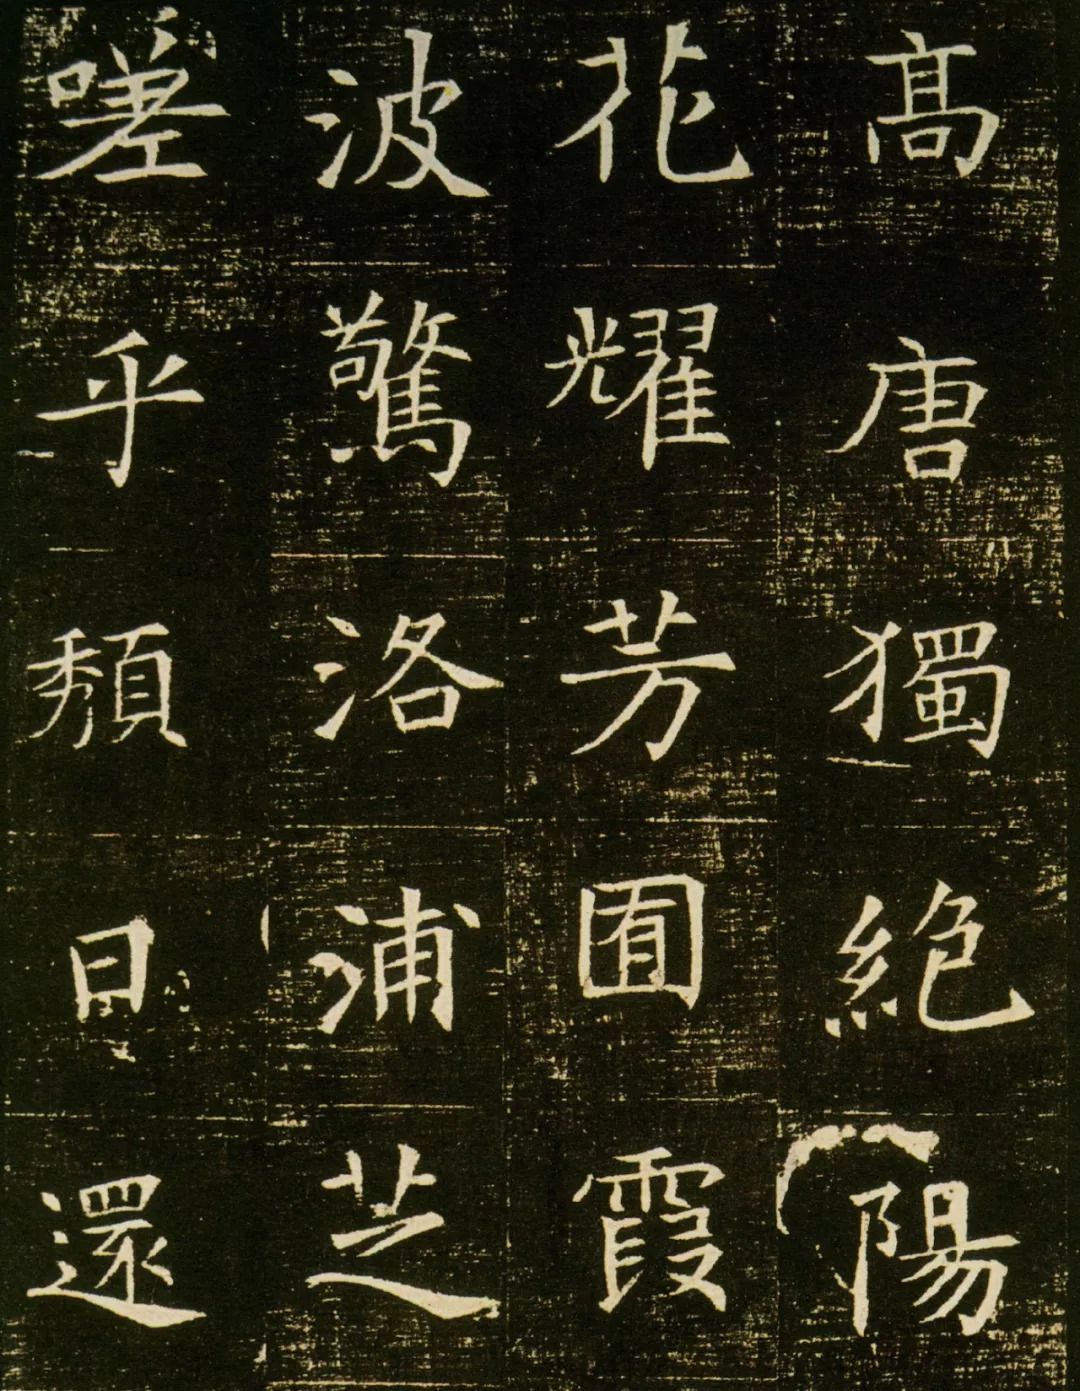 高唐獨絶陽
花耀芳囿霞
波驚洛浦芝
嗟乎頽日還